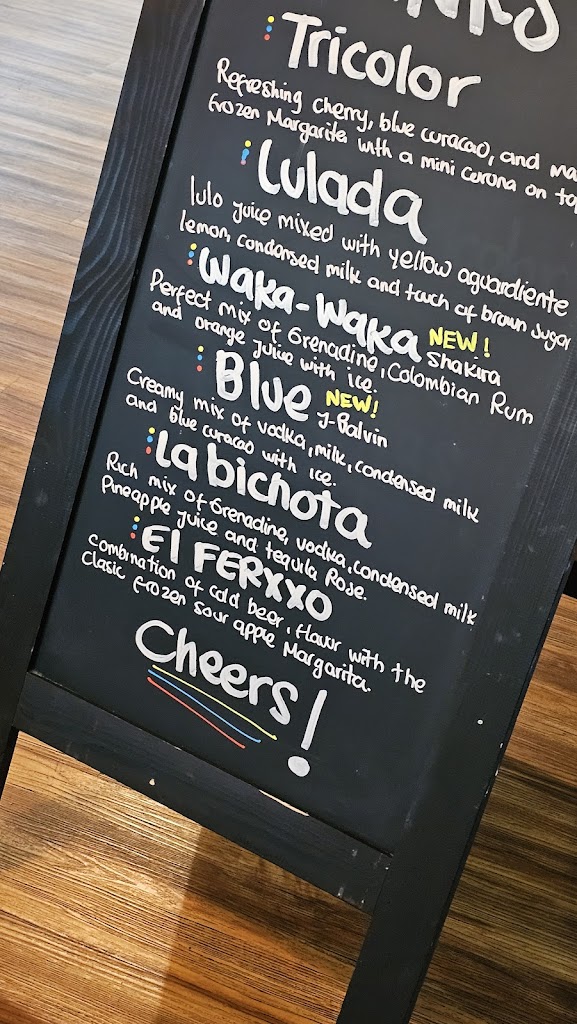 Tricolor
Refreshing cherry, blue curacao, and
frozen Margarita with a mini corona on
Lulada
lulo juice mixed with yellow aguardiente
lemon, condensed milk and touch of brown sugar
Waka-Waka NEW! Shakira
Perfect mix of Grenadine, Colombian Rum
and orange juice with ice.
Blue NEW! J-Balvin
Creamy mix of vodka, milk, condensed milk
and blue curacao with ice.
La bichota
Rich mix of Grenadine, vodka, condensed milk
Pineapple juice and tequila Rose.
El FERXXO
combination of cold beer, flavor with the
Clasic frozen sour apple Margarita.
Cheers!